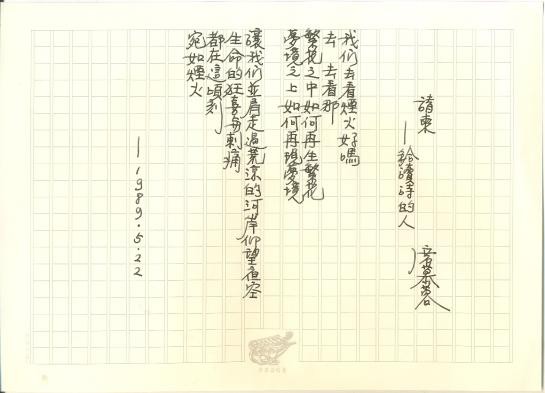 請柬
—給讀詩的人
席慕蓉
我們去看煙火好嗎
去 去看那
繁花之中如何再生繁花
夢境之上如何再現夢境
讓我們並肩走過荒涼的河岸仰望夜空
生命的狂喜與刺痛
都在這頃刻
宛如煙火
—1989.5.22